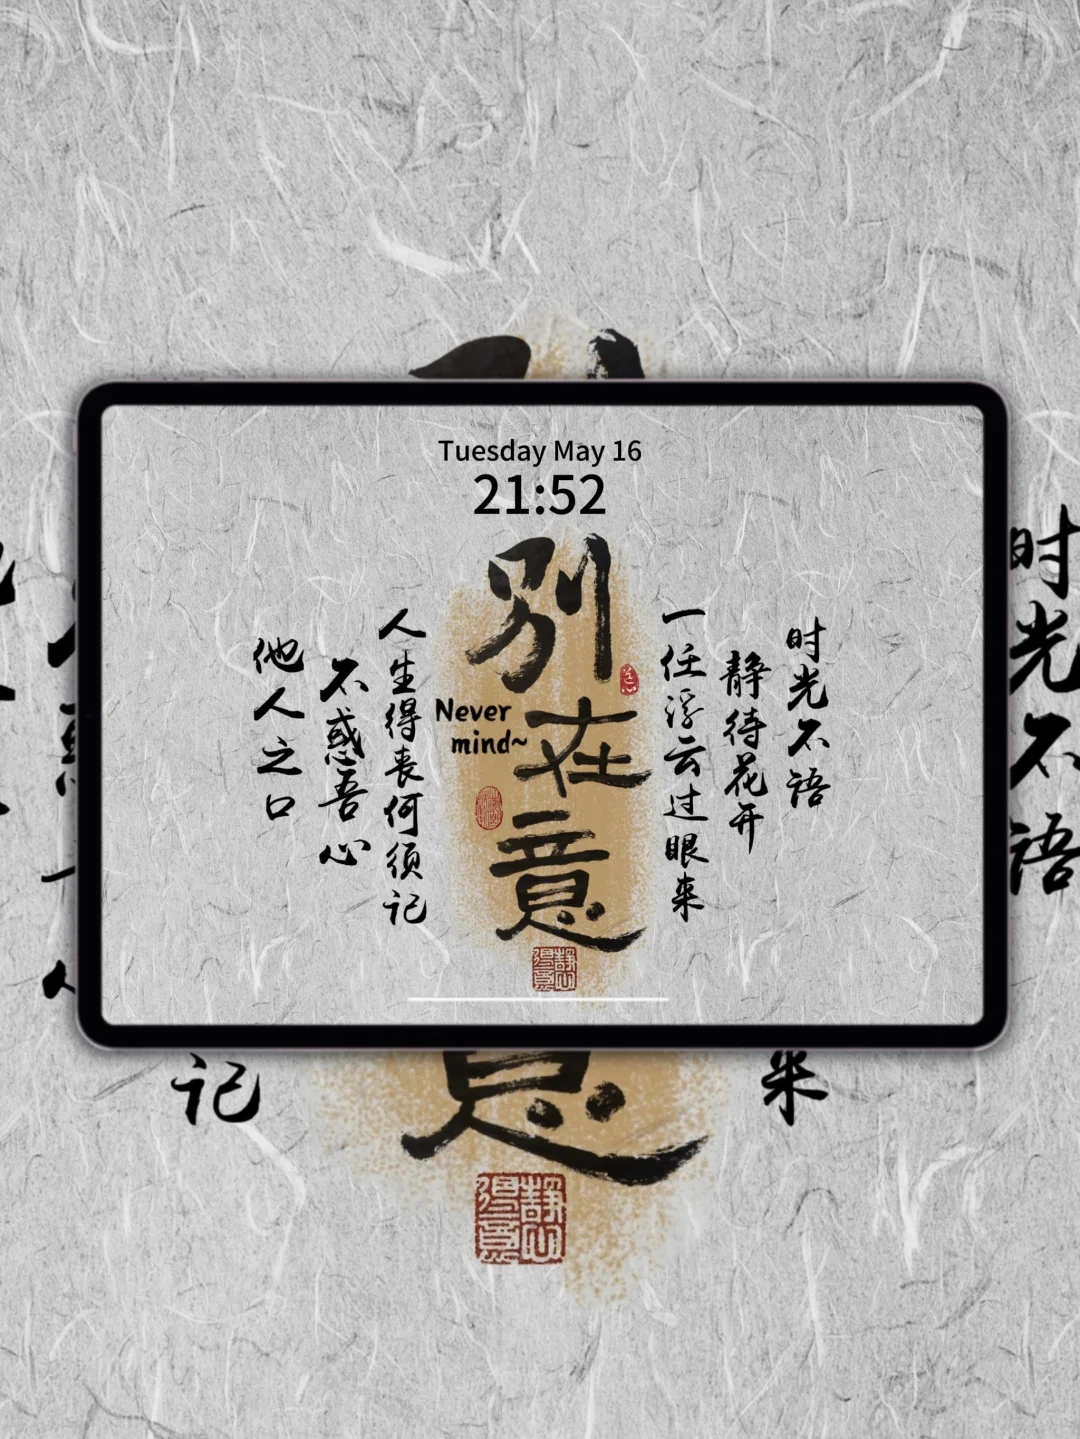 Tuesday May 16
21:52
别在意
Never
mind~
时光不语
静待花开
一任浮云过眼来
人生得丧何须记
不惑吾心
他人之口
静心
得意
时光不语
记
来
静心
得意